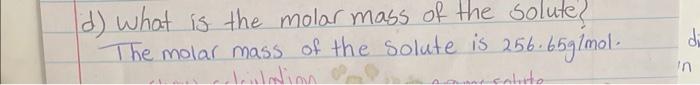 d) What is the molar mass of the solute?
The molar mass of the solute is 256.65g/mol.
di
in